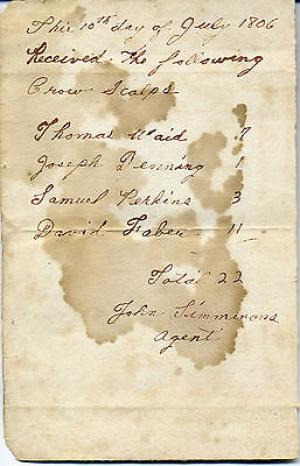 This 10th day of July 1806
Received the following
Crow Scalps
Thomas Waid 7
Joseph Denning 1
Samuel Perkins 3
David Faber 11
Total 22
John Simmerons
Agent